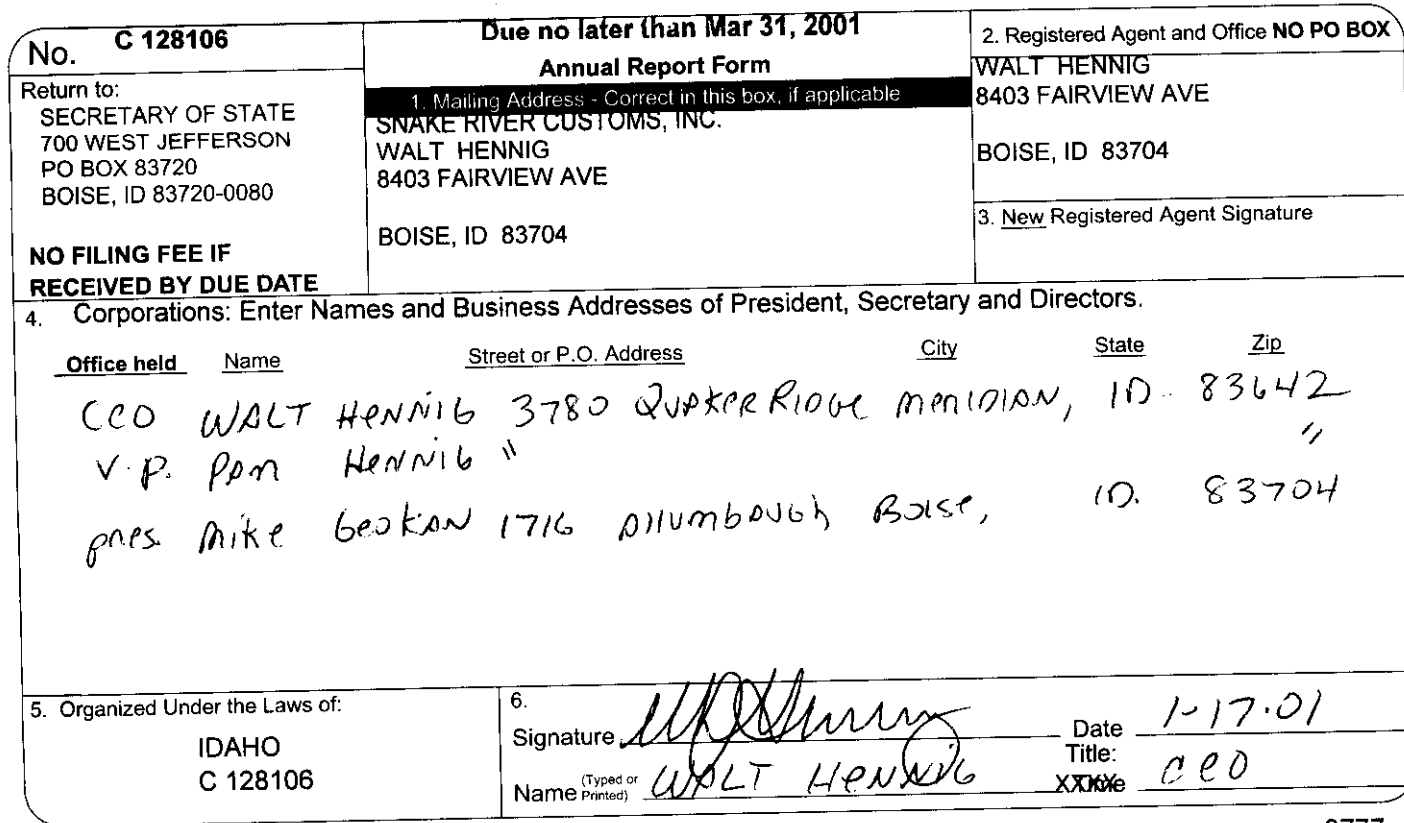 No. C 128106
Due no later than Mar 31, 2001
Annual Report Form
Return to:
SECRETARY OF STATE
700 WEST JEFFERSON
PO BOX 83720
BOISE, ID 83720-0080
NO FILING FEE IF
RECEIVED BY DUE DATE
1. Mailing Address - Correct in this box, if applicable
SNAKE RIVER CUSTOMS, INC.
WALT HENNIG
8403 FAIRVIEW AVE
BOISE, ID 83704
2. Registered Agent and Office NO PO BOX
WALT HENNIG
8403 FAIRVIEW AVE
BOISE, ID 83704
3. New Registered Agent Signature
4. Corporations: Enter Names and Business Addresses of President, Secretary and Directors.
Office held Name Street or P.O. Address City State Zip
CEO WALT HENNIG 3780 QUAKER RIDGE MERIDIAN, ID. 83642
V.P. PAM HENNIG " "
pres. Mike Geokan 1716 Allumbaugh Boise, ID. 83704
5. Organized Under the Laws of:
IDAHO
C 128106
6.
Signature Date 1-17-01
Name (Typed or Printed) WALT HENNIG Title: CEO